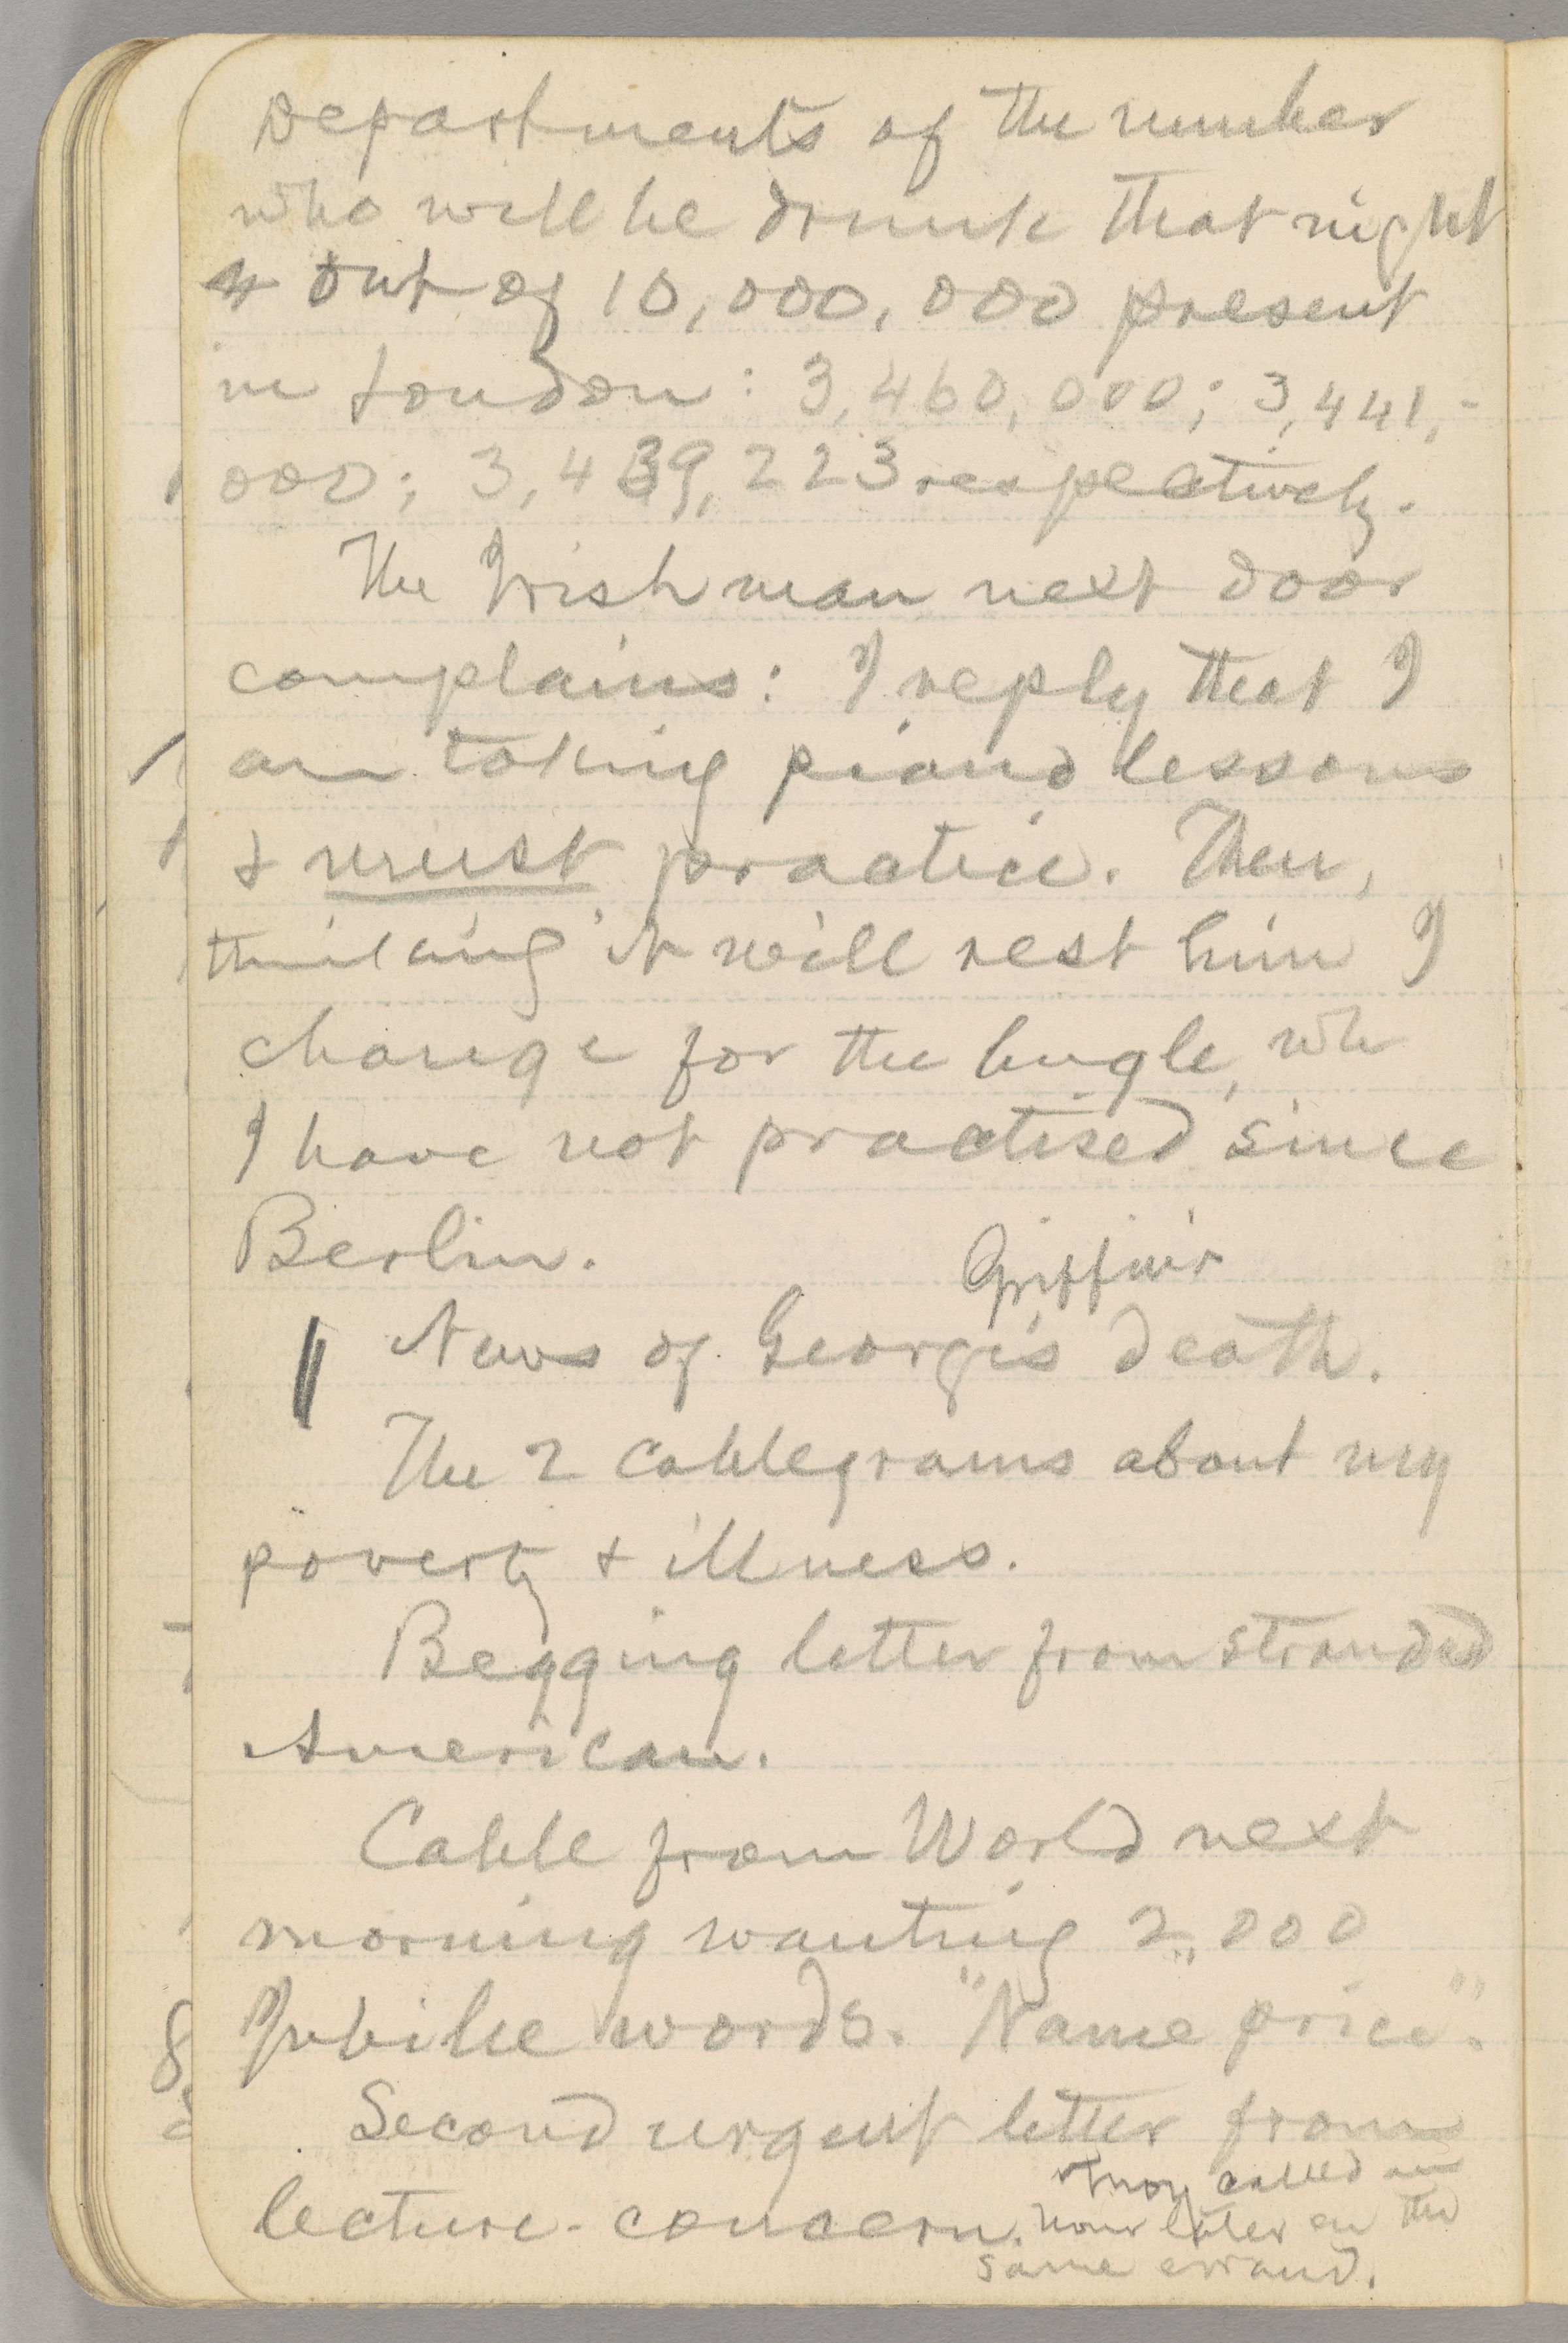 Departments of the number
who will be drunk that night
& out of 10,000,000 present
in London: 3,460,000; 3,441,-
000; 3,439,223 respectively.
The Irishman next door
complains: I reply that I
am taking piano lessons
& must practice. Then,
thinking it will rest him I
change for the bugle, wh
I have not practised since
Berlin.
Griffin's
News of George's death.
The 2 cablegrams about my
poverty & illness.
Begging letter from stranded
American.
Cable from World next
morning wanting 2,000
Jubilee words. "Name price".
Second urgent letter from
lecture-concern. They called an
hour later on the
same errand.